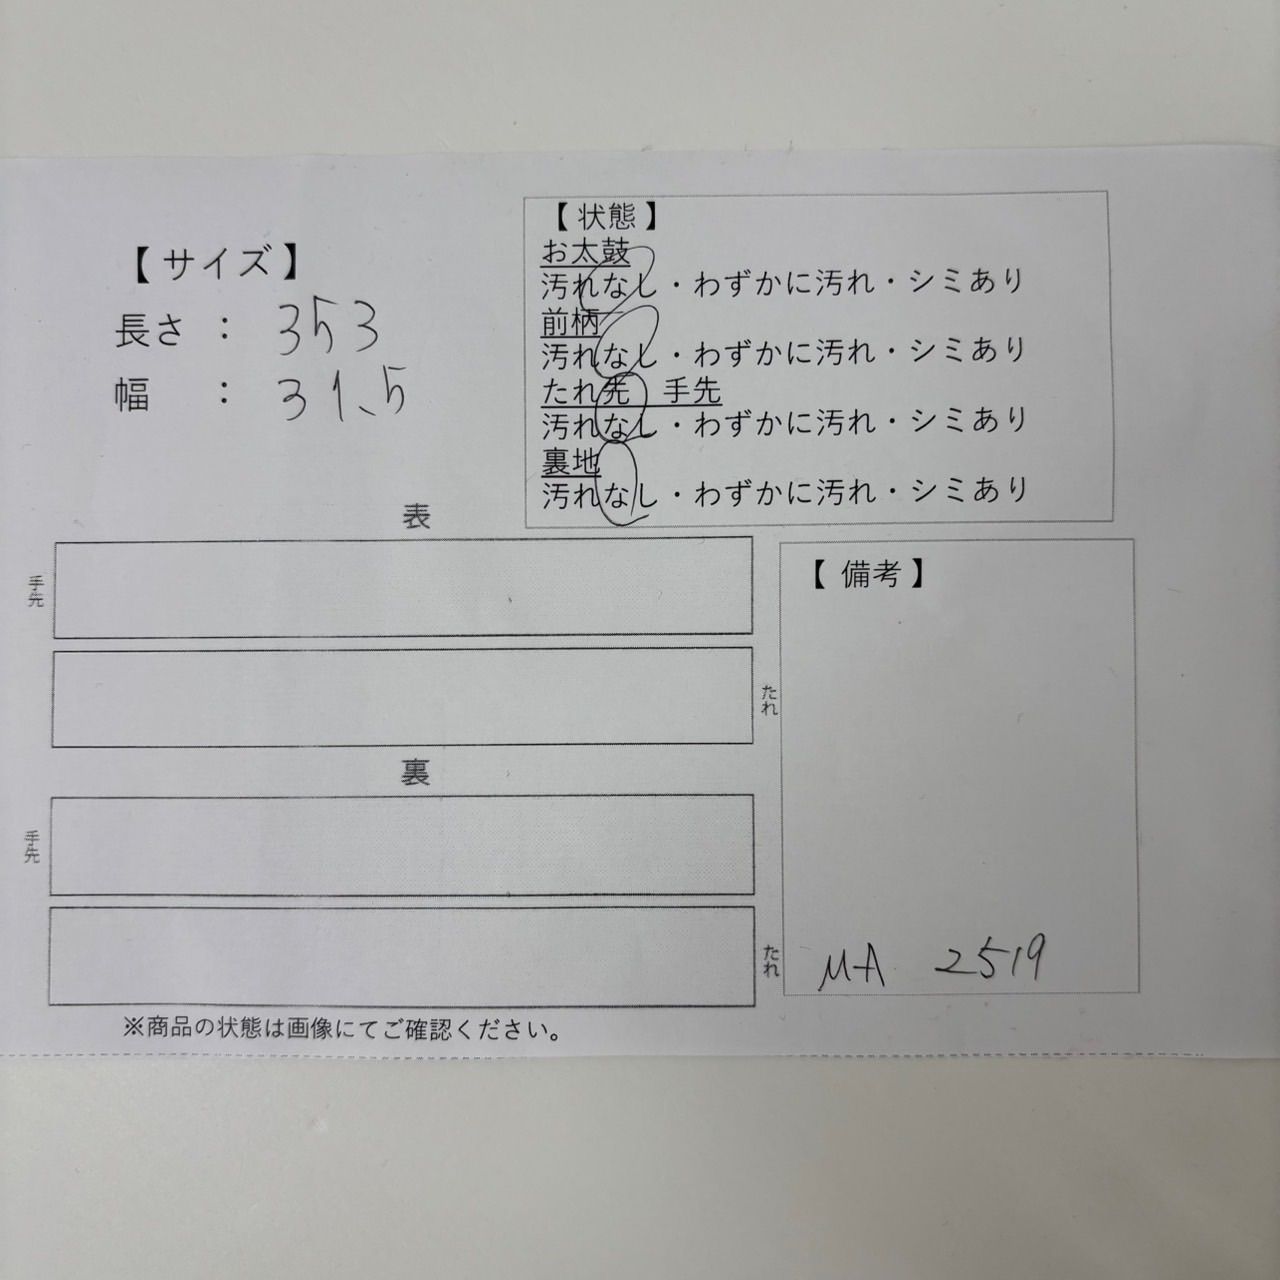 【サイズ】
長さ : 353
幅 : 31.5
【状態】
お太鼓
汚れなし・わずかに汚れ・シミあり
前柄
汚れなし・わずかに汚れ・シミあり
たれ先 手先
汚れなし・わずかに汚れ・シミあり
裏地
汚れなし・わずかに汚れ・シミあり
表
手先
たれ
裏
手先
たれ
※商品の状態は画像にてご確認ください。
【備考】
MA 2519